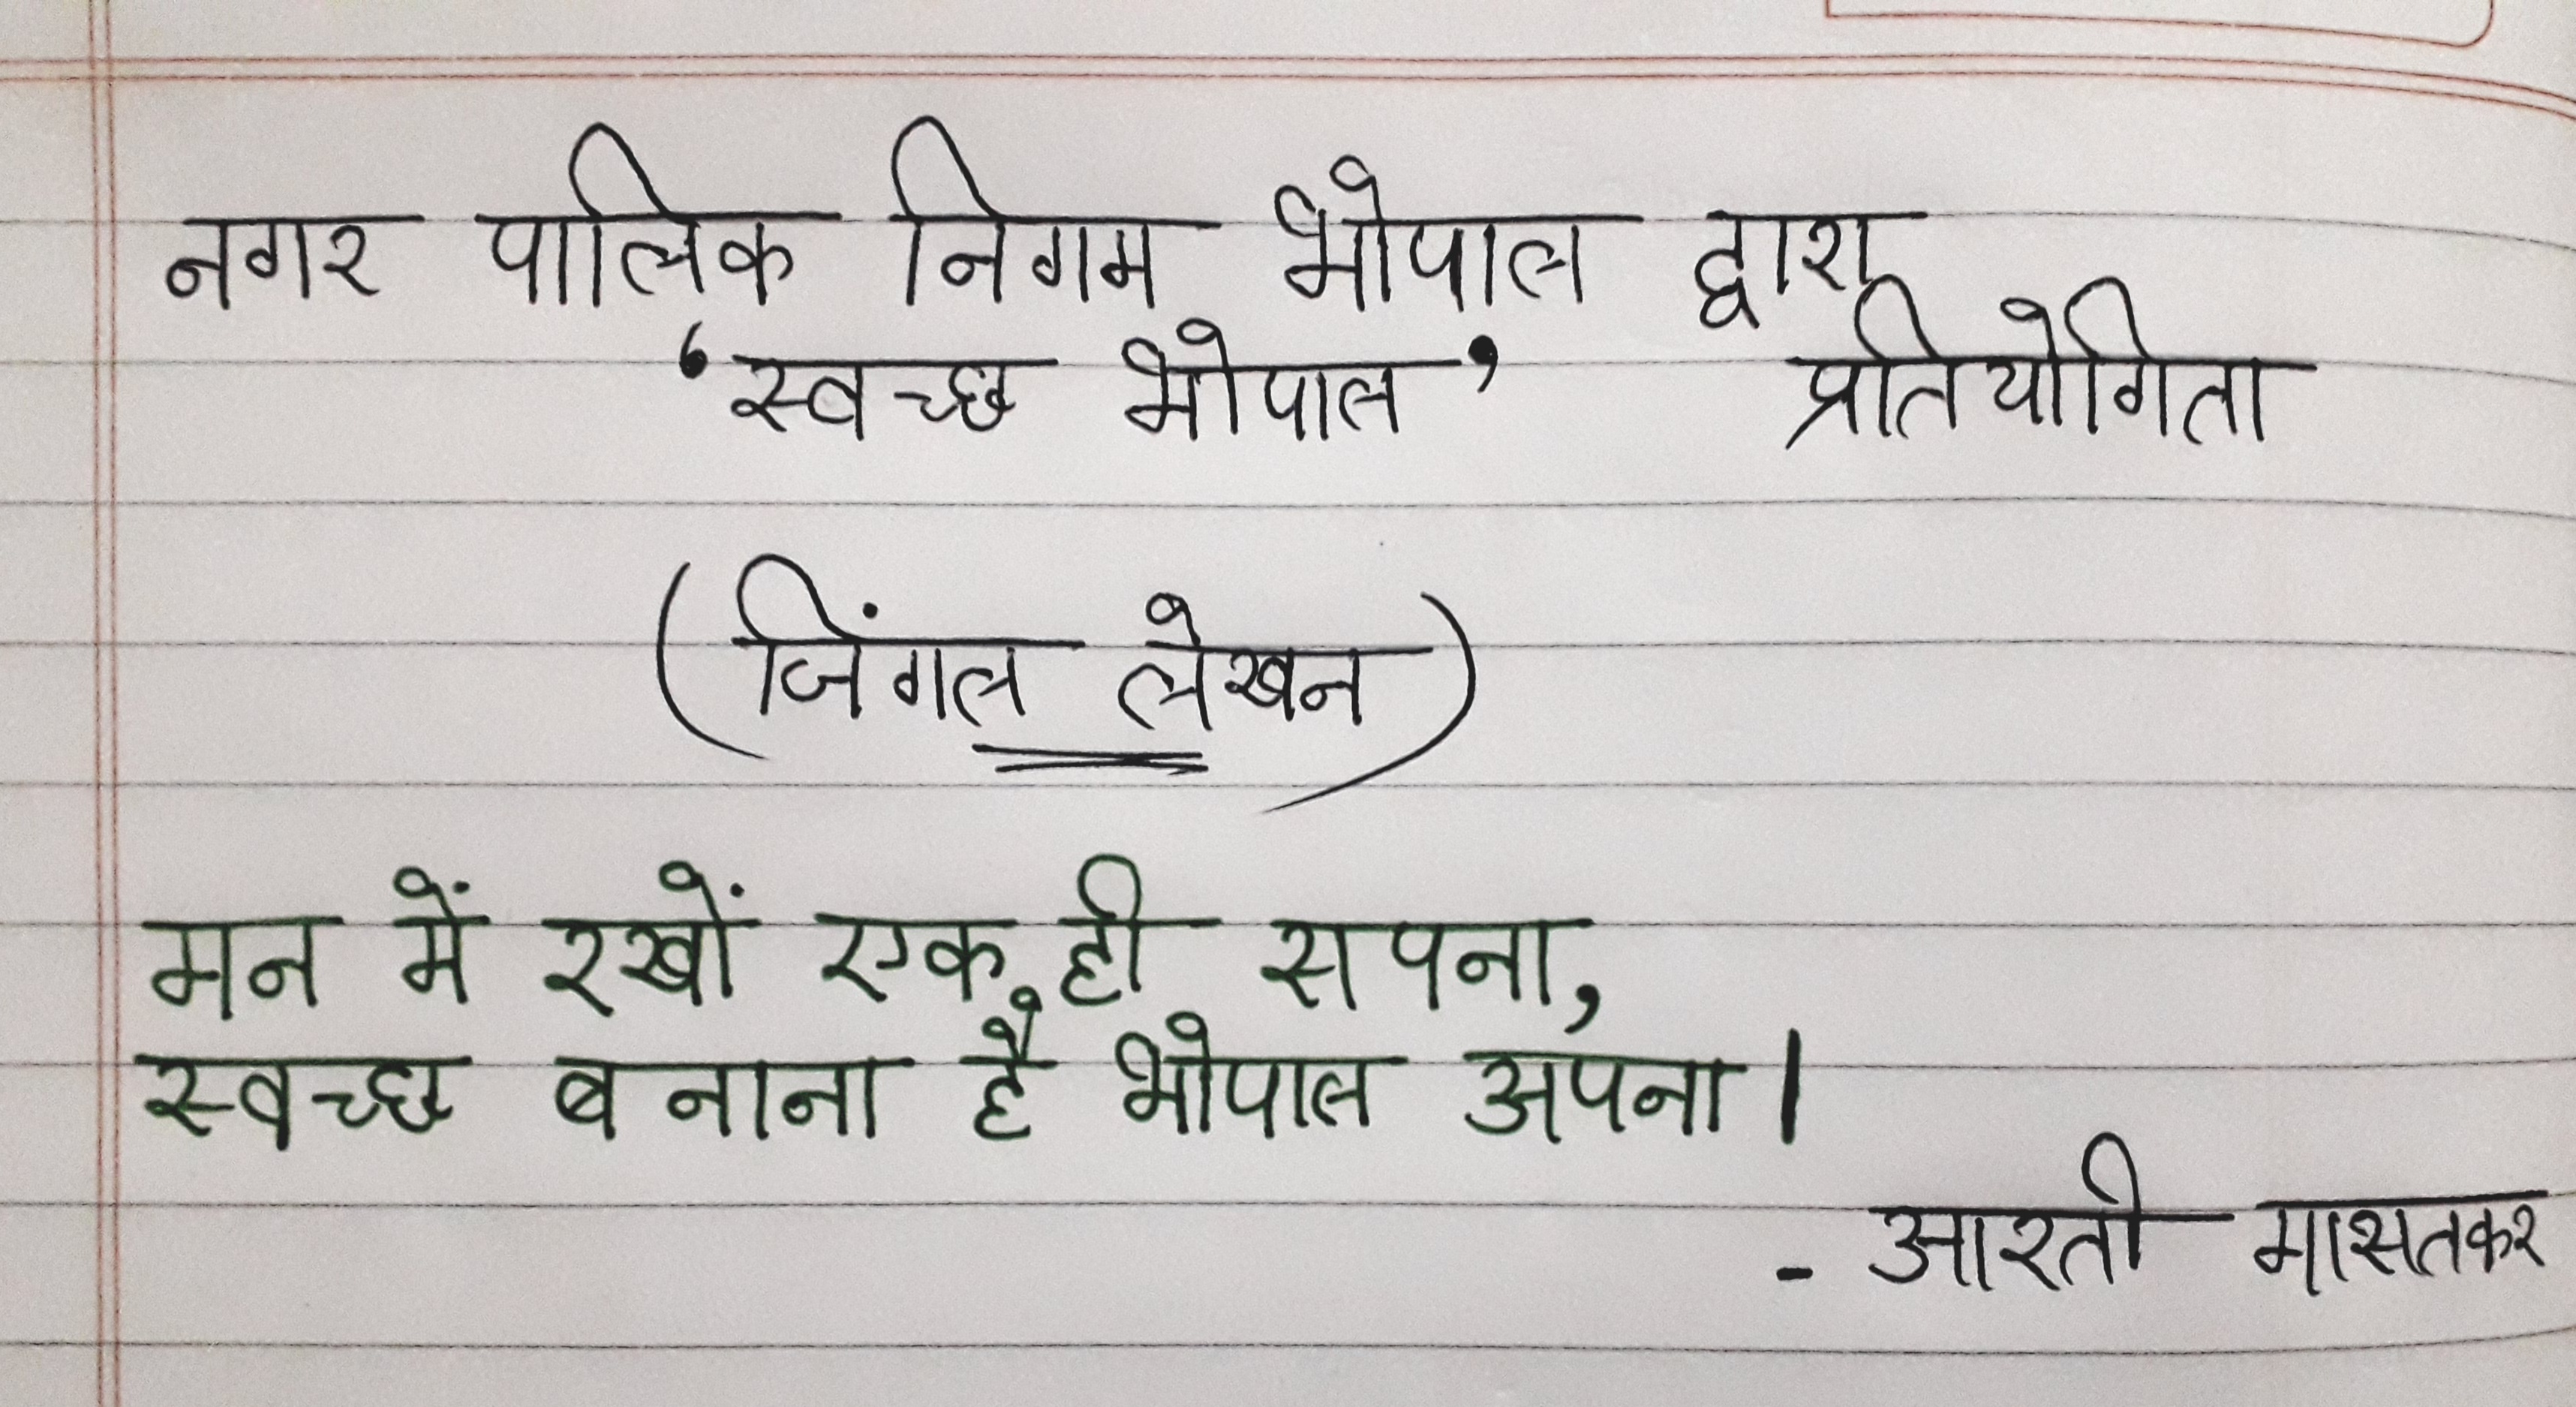 नगर पालिक निगम भोपाल द्वारा
‘स्वच्छ भोपाल’ प्रतियोगिता
(जिंगल लेखन)
मन में रखों एक ही सपना,
स्वच्छ बनाना है भोपाल अपना।
- आरती मासतकर